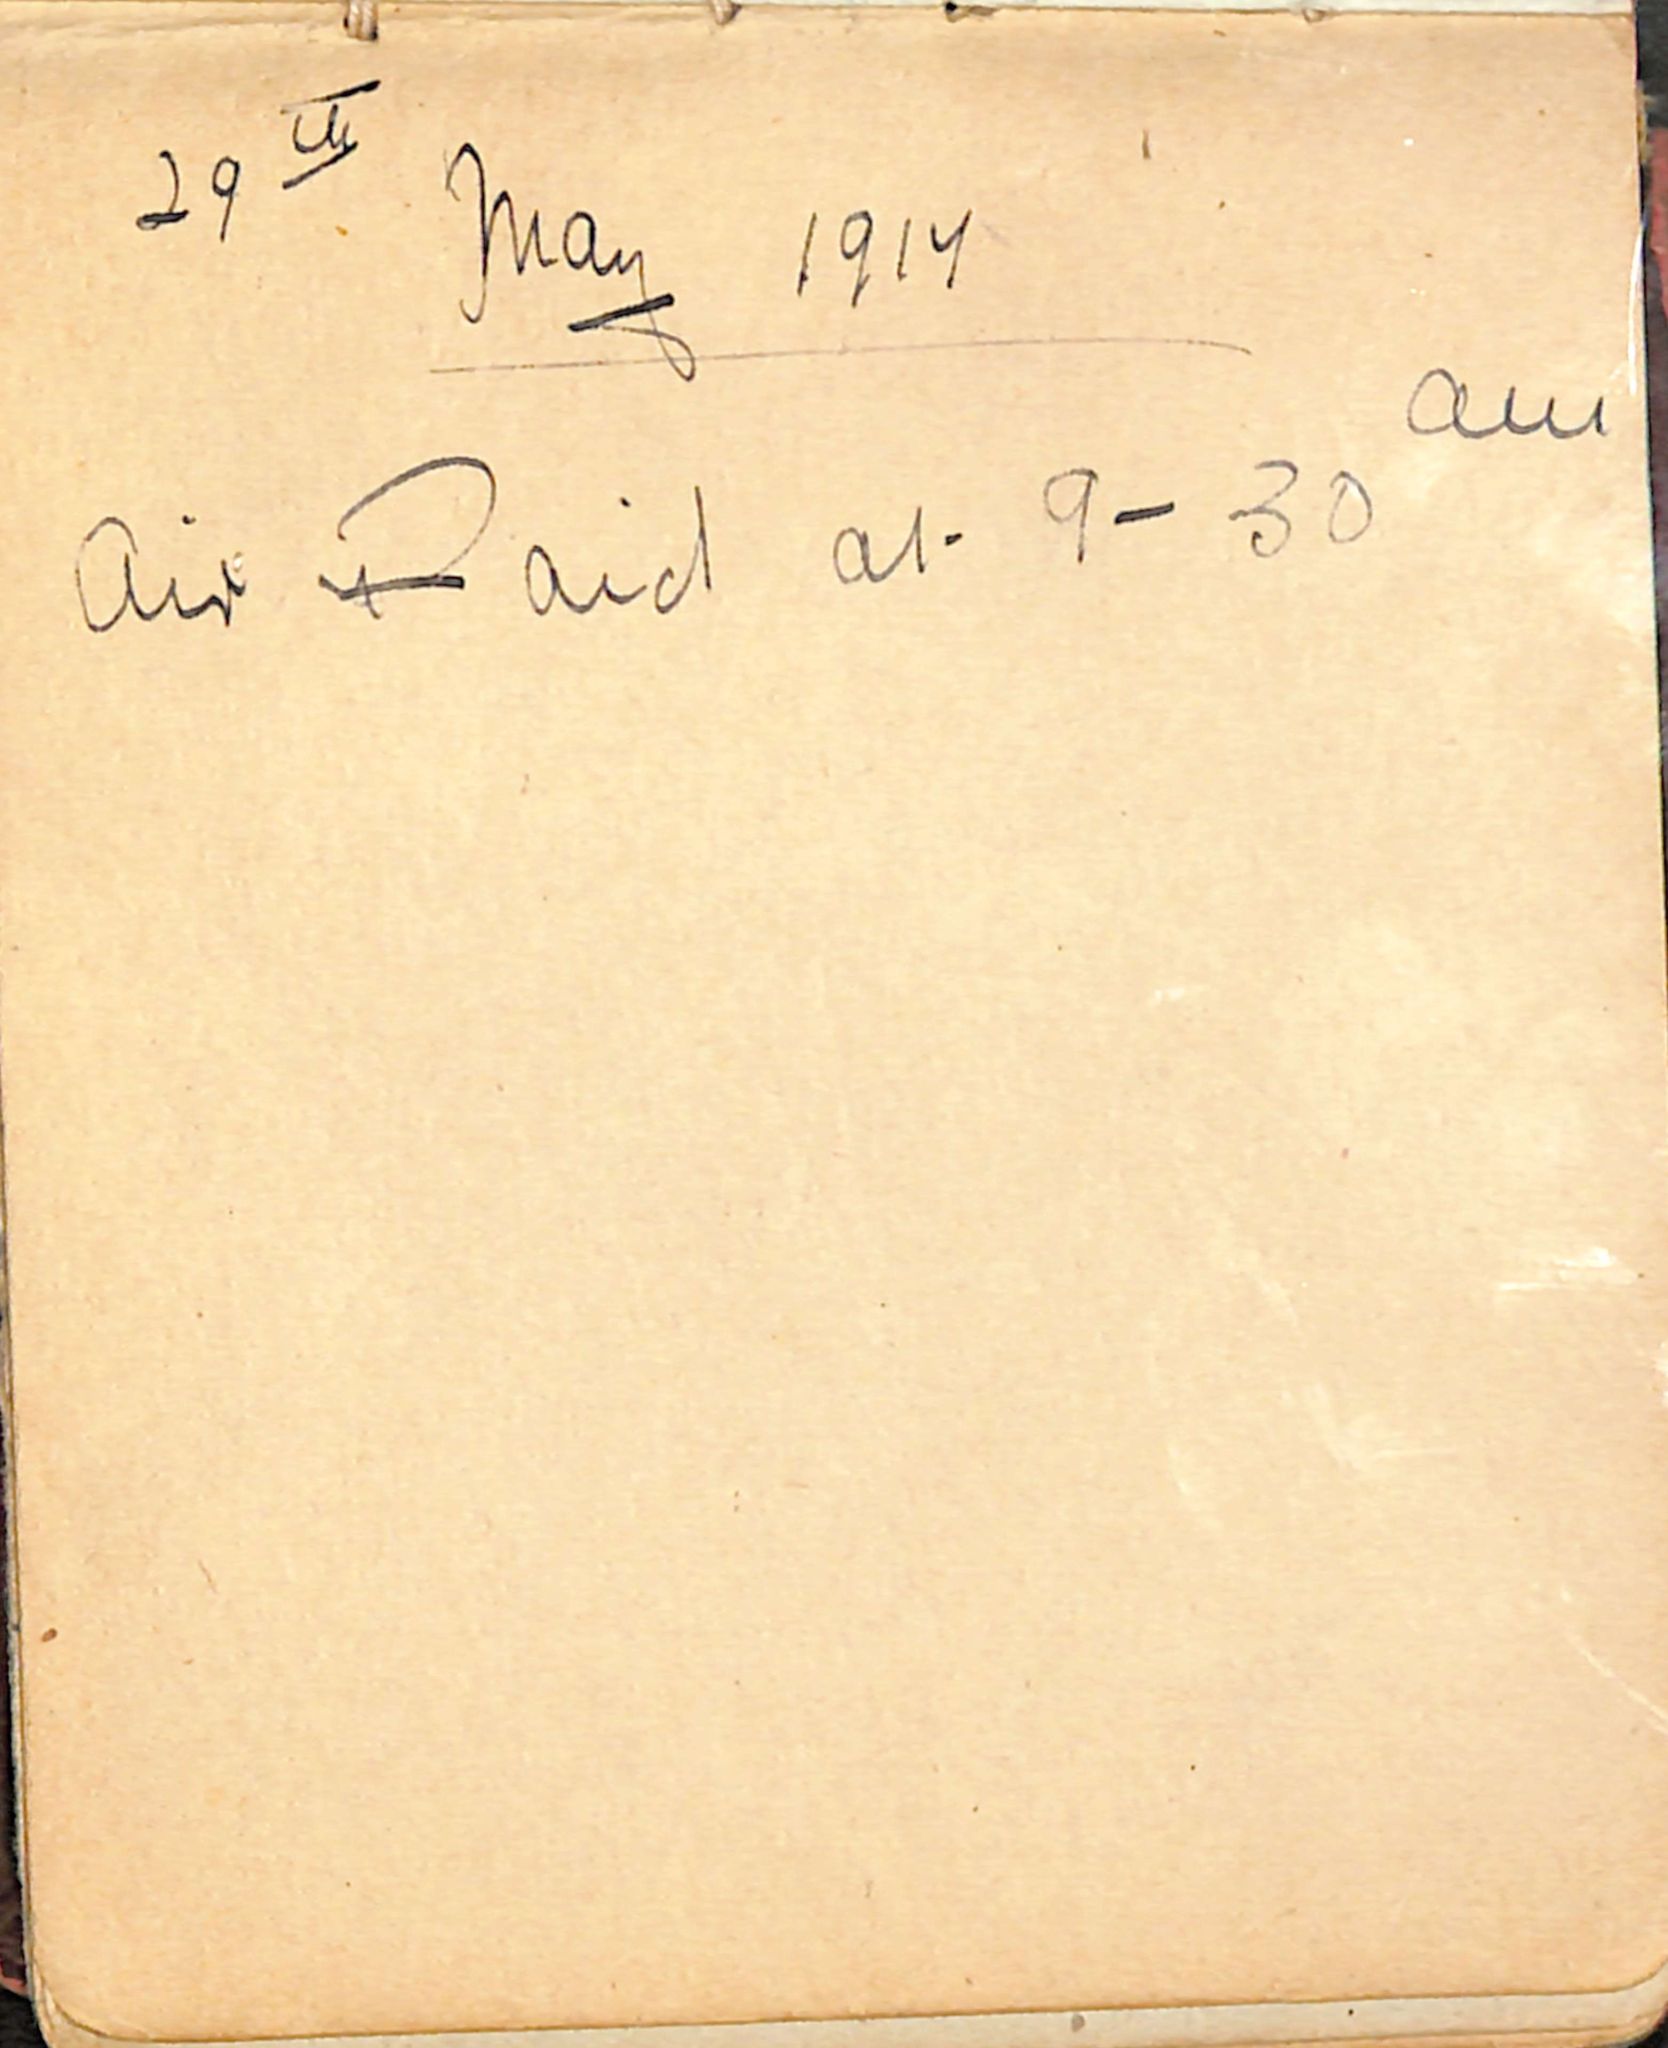 29th May 1917
Air Raid at 9-30 am